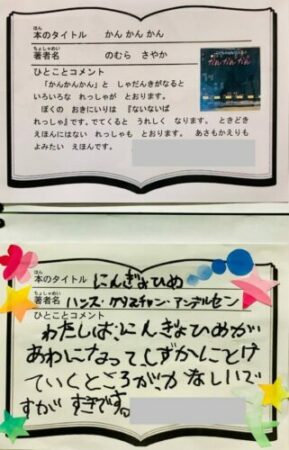 ほん
本のタイトル かん かん かん
ちょしゃめい
著者名 のむら さやか
ひとことコメント
「かんかんかん」と しゃだんきがなると
いろいろな れっしゃが とおります。
ぼくの おきにいりは 『ないないば
れっしゃ』です。でてくると うれしく なります。 ときどき
えほんにはない れっしゃも とおります。 あさもかえりも
よみたい えほんです。
かんかんかん
ほん
本のタイトル にんぎょひめ
ちょしゃめい
著者名 ハンス・クリスチャン・アンデルセン
ひとことコメント
わたしは、にんぎょひめが
あわになって、しずかにとけ
ていくところが、かなしいで
すが すきです。